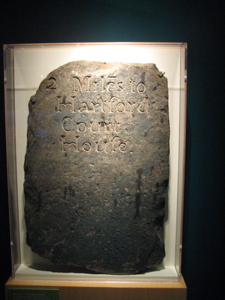 2 Miles to
Hartford
Court
House